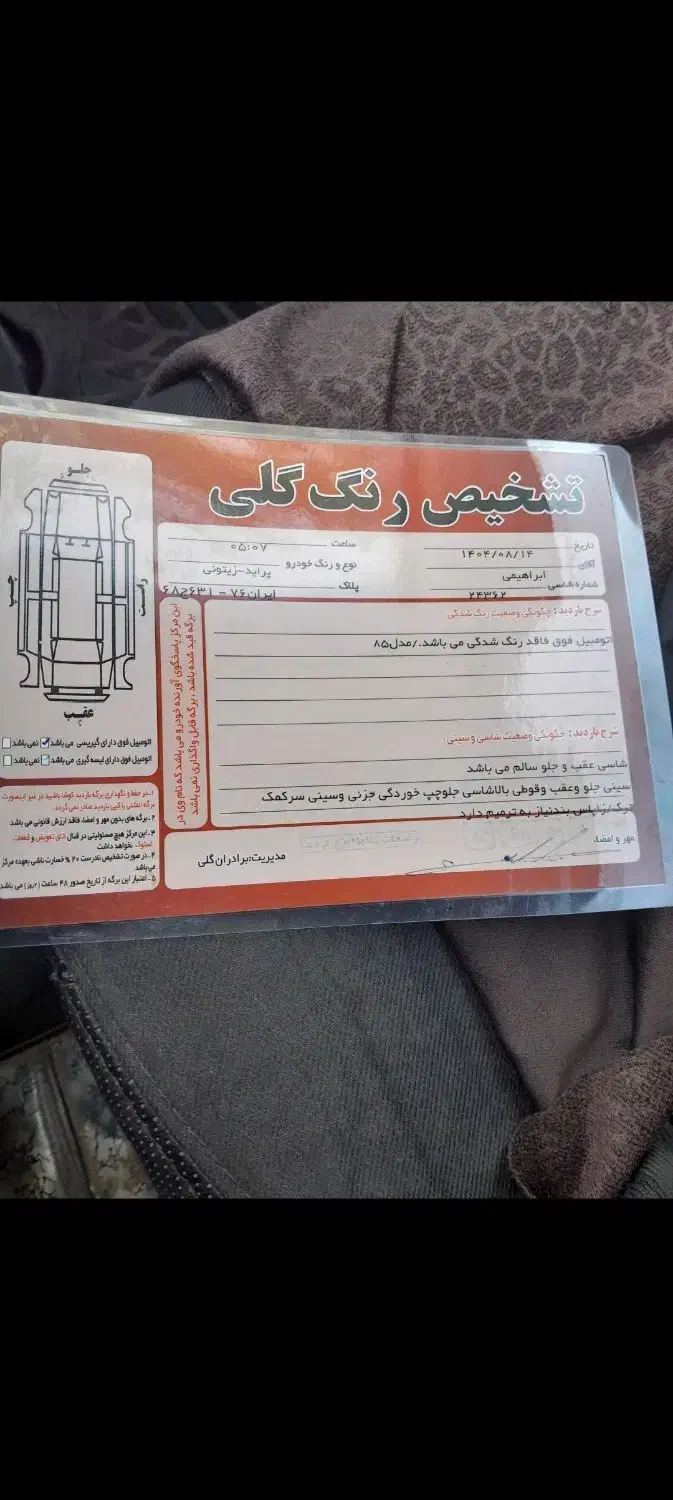 تشخیص رنگ گلی
تاریخ ۱۴۰۴/۰۸/۱۴
ساعت ۰۵:۰۷
آقای ابراهیمی
نوع و رنگ خودرو پراید-زیتونی
شماره شاسی ۲۴۳۶۲
پلاک ایران۷۶ - ۶۳۱ج۶۸
شرح بازدید: چگونگی وضعیت رنگ شدگی:
اتومبیل فوق فاقد رنگ شدگی می باشد./مدل۸۵
شرح بازدید: چگونگی وضعیت شاسی و سینی:
شاسی عقب و جلو سالم می باشد
سینی جلو وعقب وقوطی بالاشاسی جلوچپ خوردگی جزئی وسینی سرکمک
ترک/زاپاس بندنیاز به ترمیم دارد
مهر و امضاء
مدیریت: برادران گلی
این مرکز پاسخگوی آورنده خودرو می باشد که نام وی در
برگه قید شده باشد ، برگه قابل واگذاری نمی باشد
جلو
راست
چپ
عقب
اتومبیل فوق دارای گیریسی می باشد نمی باشد
اتومبیل فوق دارای لیسه گیری می باشد نمی باشد
۱- در حفظ و نگهداری برگه بازدید کوشا باشید در غیر اینصورت
برگه المثنی یا کپی بازدید صادر نمی گردد.
۲- برگه های بدون مهر و امضاء، فاقد ارزش قانونی می باشد
۳- این مرکز هیچ مسئولیتی در قبال اتاق تعویض و قطعات
استوک نخواهد داشت
۴- در صورت تشخیص نادرست ۲۰ % خسارت ناشی بعهده مرکز
می باشد
۵- اعتبار این برگه از تاریخ صدور ۴۸ ساعت (۲ روز) می باشد